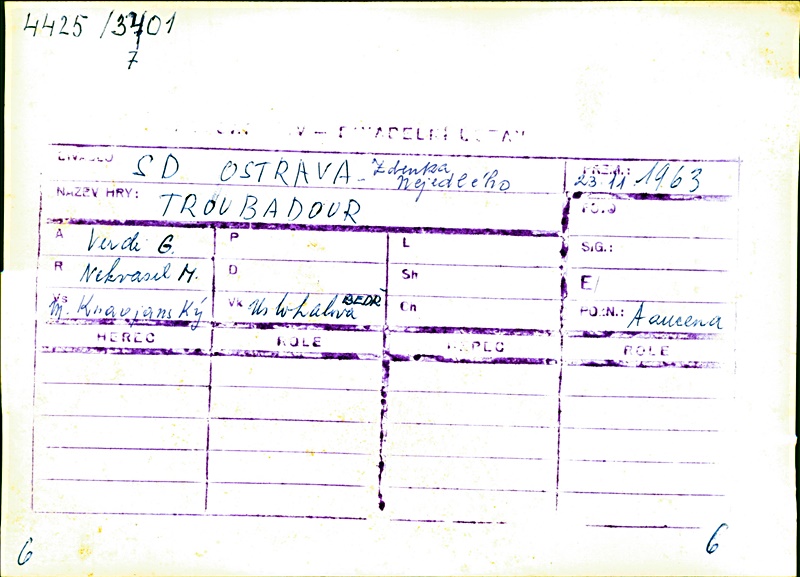 4425 / 3401
7
DIVADELNÍ ÚSTAV
DIVADLO SD OSTRAVA - Zdeňka Nejedlého PREM.: 23.11.1963
NÁZEV HRY: TROUBADOUR FOTO
A Verdi G. P L SIG.:
R Nekvasil M. D Sh E/
VS Vk BEDR Ch POZN.: Azucena
HEREC ROLE HEREC ROLE
6 6